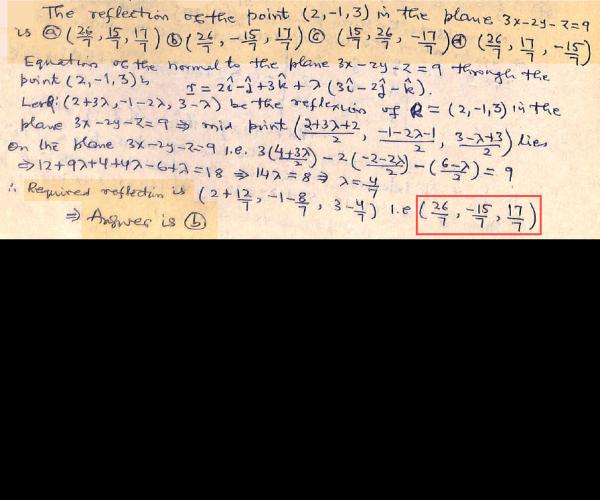 The reflection of the point (2,-1,3) in the plane 3x-2y-z=9
is ⓐ (26/7, 15/7, 17/7) ⓑ (26/7, -15/7, 17/7) ⓒ (15/7, 26/7, -17/7) ⓓ (26/7, 17/7, -15/7)
Equation of the normal to the plane 3x-2y-z=9 through the
point (2,-1,3) is r = 2î-ĵ+3k̂+λ(3î-2ĵ-k̂).
Let Q: (2+3λ, -1-2λ, 3-λ) be the reflexion of P = (2,-1,3) in the
plane 3x-2y-z=9 ⇒ mid point ((2+3λ+2)/2, (-1-2λ-1)/2, (3-λ+3)/2) lies
on the plane 3x-2y-z=9 i.e. 3((4+3λ)/2) - 2((-2-2λ)/2) - ((6-λ)/2) = 9
⇒ 12+9λ+4+4λ-6+λ=18 ⇒ 14λ=8 ⇒ λ=4/7
∴ Required reflection is (2+12/7, -1-8/7, 3-4/7) i.e (26/7, -15/7, 17/7)
⇒ Answer is ⓑ